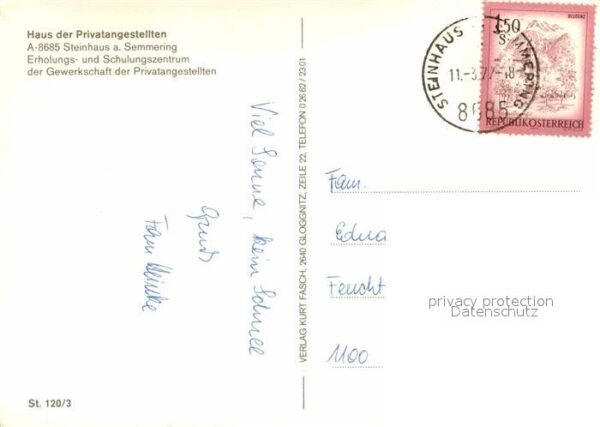 Haus der Privatangestellten
A-8685 Steinhaus a. Semmering
Erholungs- und Schulungszentrum
der Gewerkschaft der Privatangestellten
Viel Sonne, kein Schnee
Gruß
Fam
VERLAG KURT FASCH, 2640 GLOGGNITZ, ZEILE 22, TELEFON 0 26 62 / 23 01
STEINHAUS SEMMERING
11.-3.77-18
8685
3.50
S
REPUBLIK ÖSTERREICH
Fam.
Edua
Feucht
1100
privacy protection
Datenschutz
St. 120/3